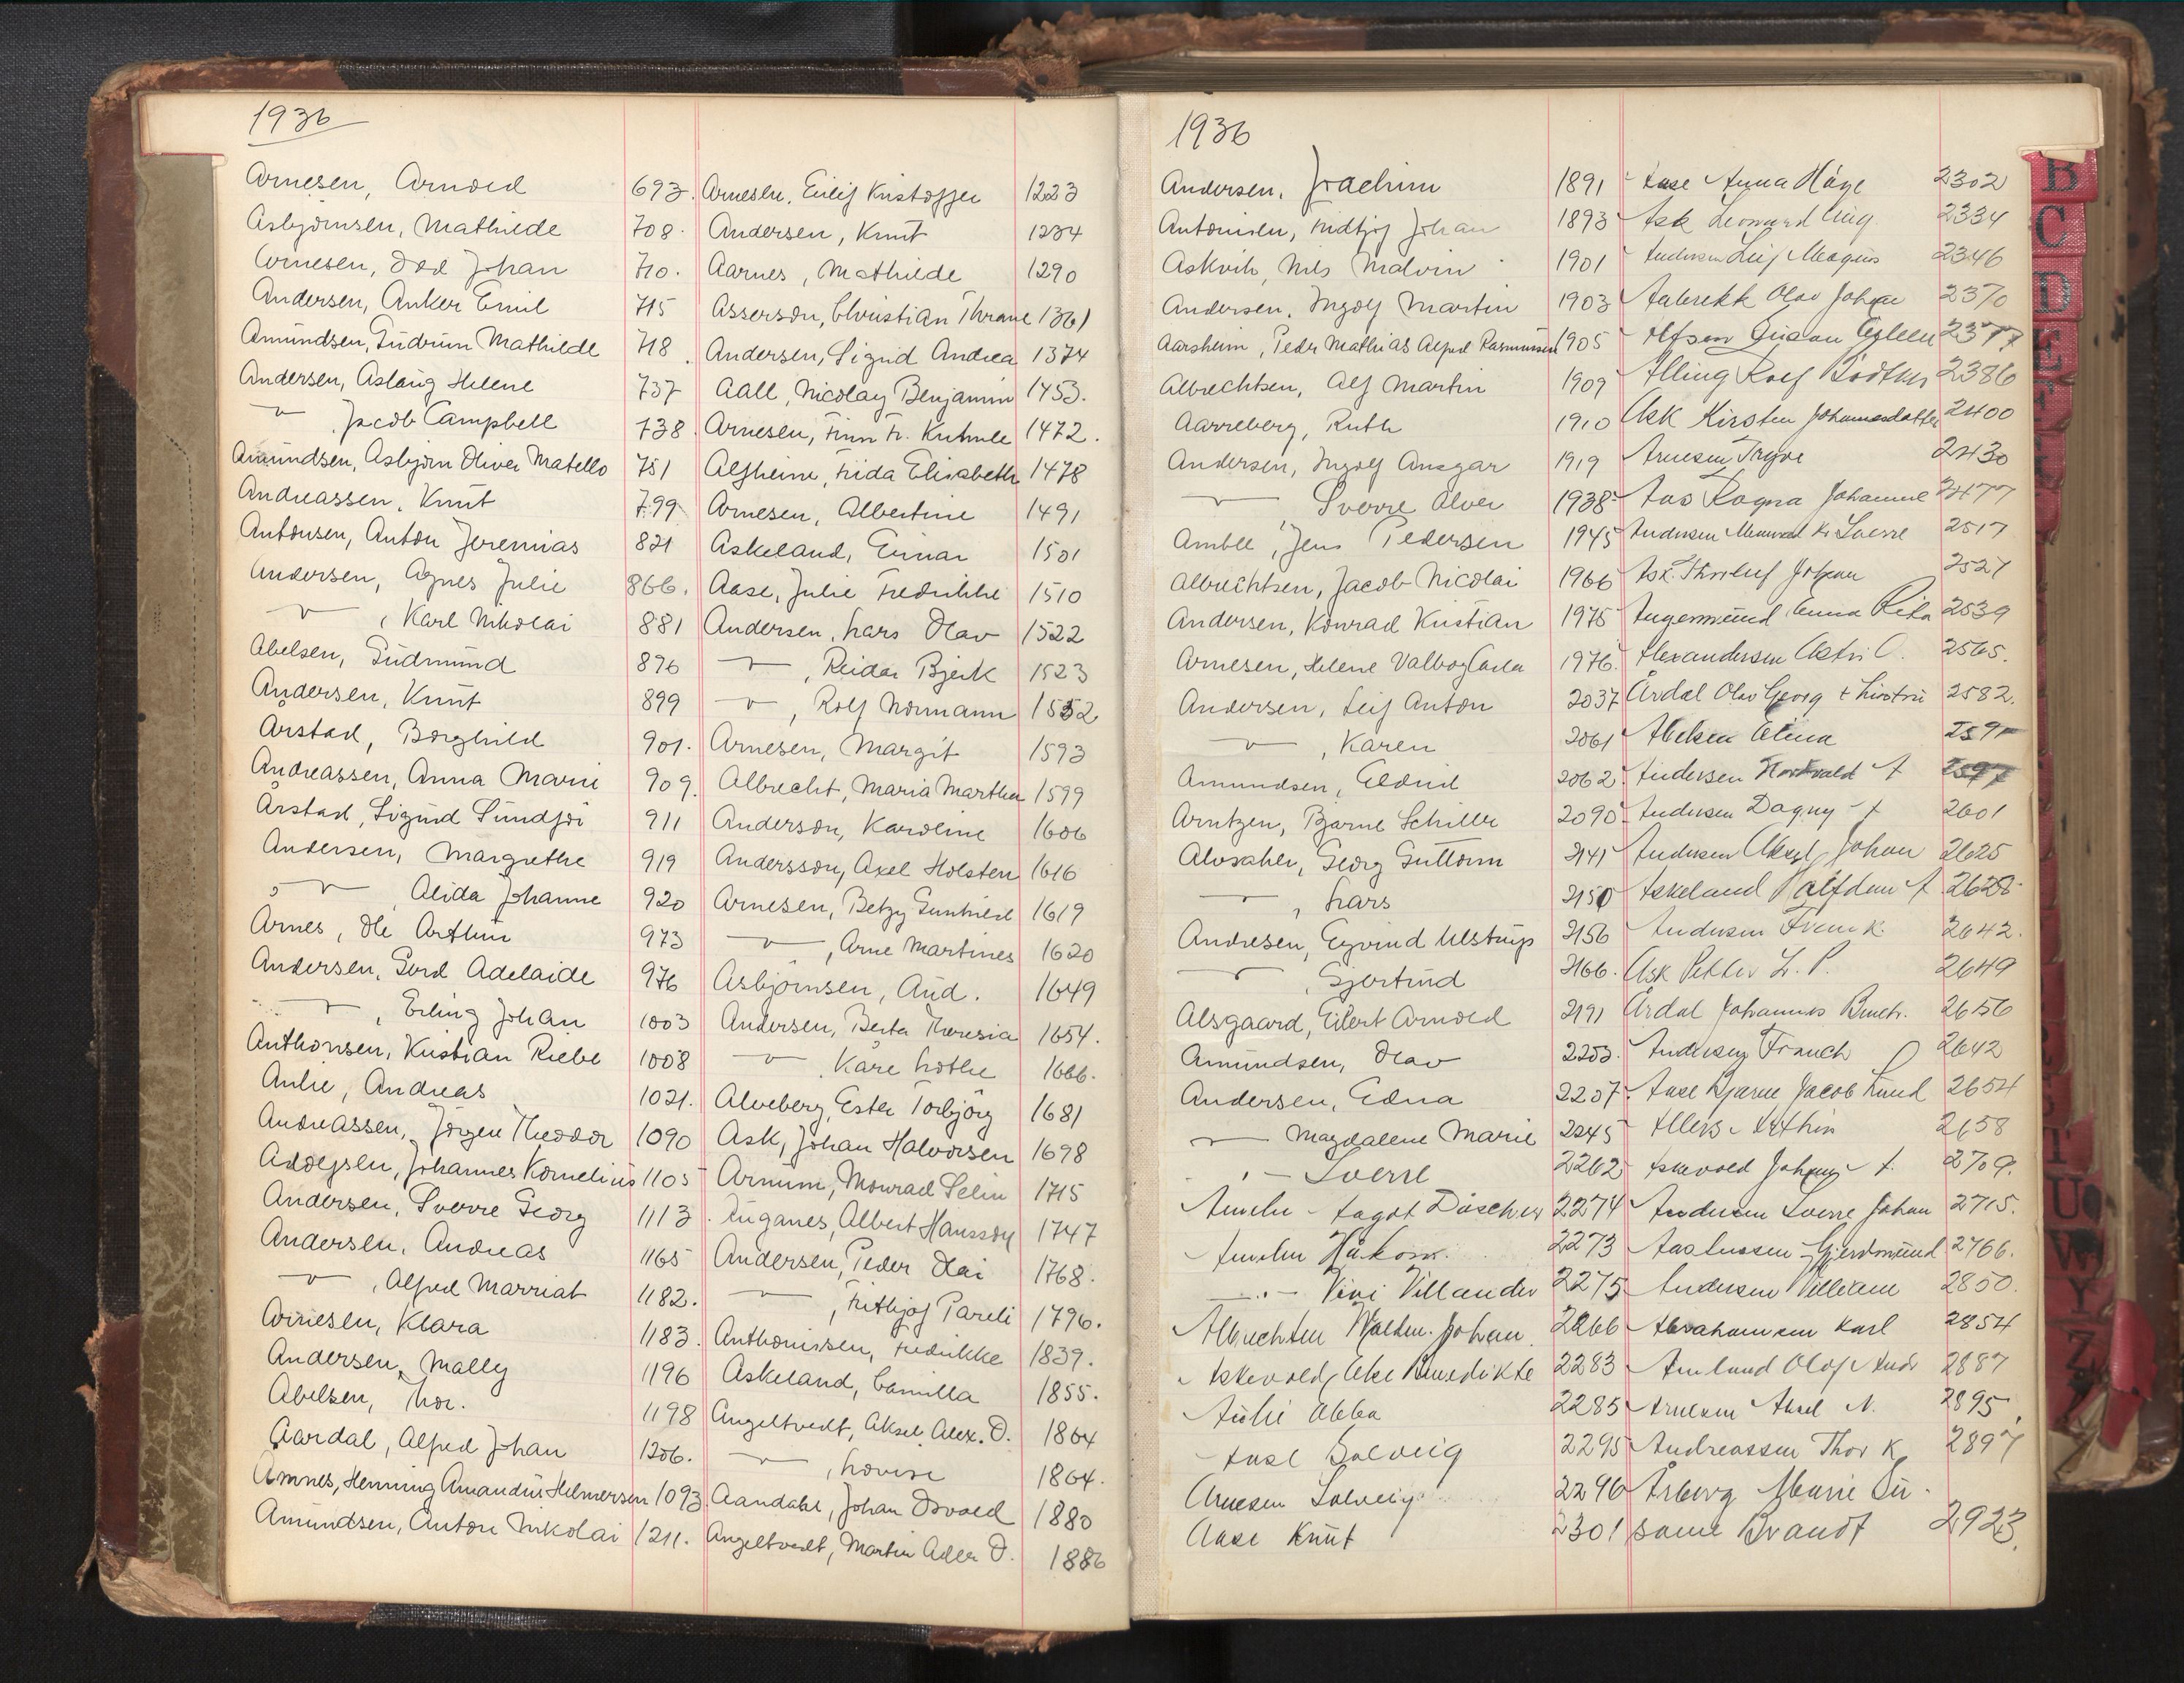 1936
Arnesen, Arnold 693.
Asbjørnsen, Mathilde 708.
Arnesen, Odd Johan 710.
Andersen, Anker Emil 715
Amundsen, Gudrun Mathilde 718
Andersen, Aslaug Helene 737
" Jacob Campbell 738
Amundsen, Asbjørn Oliver Matello 751
Andreassen, Knut 799
Antonsen, Anton Jeremias 821
Andersen, Agnes Julie 866.
" , Karl Nikolai 881
Abelsen, Gudmund 896
Andersen, Knut 899
Årstad, Borghild 901.
Andreassen, Anna Marie 909.
Årstad, Sigurd Sundfør 911
Andersen, Margrethe 919
" , Alida Johanne 920
Arnes, Ole Arthur 973
Andersen, Gerd Adelaide 976
" , Erling Johan 1003
Anthonsen, Kristian Riebe 1008
Aulie, Andreas 1021.
Andreassen, Jørgen Theodor 1090
Adolfsen, Johannes Kornelius 1105
Andersen, Sverre Georg 1113
Andersen, Andreas 1165
" , Alfred Marriat 1182.
Arnesen, Klara 1183.
Andersen, Mally 1196
Abelsen, Thor. 1198
Aardal, Alfred Johan 1206.
Amnes, Henning Amandus Helmersen 1093
Amundsen, Anton Nikolai 1211.
Arnesen, Eilif Kristoffer 1223
Andersen, Knut 1234
Aarnes, Mathilde 1290
Asserson, Christian Thrane 1361
Andersen, Sigrid Andrea 1374
Aall, Nicolay Benjamin 1453.
Arnesen, Finn Fr. Kuhnle 1472.
Alfheim, Frida Elisabeth 1478
Arnesen, Albertine 1491
Askeland, Einar 1501
Aase, Julie Fredrikke 1510
Andersen, Lars Olav 1522
" , Reidar Bjerk 1523
" , Rolf Normann 1552
Arnesen, Margit 1593
Albrecht, Maria Martha 1599
Anderson, Karoline 1606
Andersson, Axel Holsten 1616
Arnesen, Betzy Gunhild 1619
" , Arne Martines 1620
Asbjørnsen, Aud. 1649
Andersen, Berta Theresia 1654.
" Kåre Lothe 1666.
Alveberg, Ester Torbjørg 1681
Ask, Johan Halvorsen 1698
Arnum, Monrad Selin 1715
Auganes, Albert Hansson 1747
Andersen, Peder Olai 1768.
" , Fritjof Pareli 1796.
Anthonissen, Fredrikke 1839.
Askeland, Camilla 1855.
Angeltvedt, Aksel Alex. O. 1864
" , Lovise 1864.
Aandahl, Johan Osvald 1880
Angeltvedt, Martin Adler O. 1886
1936
Andersen, Joachim 1891
Antonisen, Fridtjof Johan 1893
Askvik, Nils Malvin 1901
Andersen, Ingolf Martin 1903
Aarsheim, Peder Mathias Alfred Rasmussen 1905
Albrechtsen, Alf Martin 1909
Aarreberg, Ruth 1910
Andersen, Ingolf Ansgar 1919
" Sverre Alver 1938
Amble, Jens Pedersen 1945
Albrechtsen, Jacob Nicolai 1966
Andersen, Konrad Kristian 1975
Arnesen, Helene Valborg Carla 1976.
Andersen, Leif Anton 2037
" , Karen 2061
Amundsen, Eldrid 2062
Arntzen, Bjarne Schiller 2090
Alvsaker, Georg Guttorm 2141
" , Lars 2150
Andresen, Eyvind Ulstrup 2156
" , Gjertrud 2166.
Alsgaard, Eilert Arnold 2191
Amundsen, Olav 2203.
Andersen, Edna 2207.
" Magdalene Marie 2245
" - Sverre 2262
2274
2273
Vivi Villander 2275
Albrechtsen Waldm. Johan 2266
Askevold, Else Benedikte 2283
Aulie Abba 2285
Aase Solveig 2295
Arnesen Solveig 2296
Aase Knut 2301
Aase Anna Håge 2302
Ask Leonard Aug. 2334
Andersen Leif Magnus 2346
Aabrekk Olav Johan 2370
2377
Alling Rolf Bødtker 2386
Ask Kirsten Johannesdatter 2400
Arnesen Trygve 2430
Aas Ragna Johanne 2477
Andersen Kr Sverre 2517
Ask. Thorleif Johan 2527
Angermund Anna Rita 2539
Alexandersen Astri O. 2565.
Årdal Olav Georg 2582.
Abelsen Alina
Andersen
Andersen Dagny 2601
Andersen Aksel Johan 2625
Askeland Halfdan A 2628
Andersen Frank. 2642.
Ask Petter L. P. 2649
Årdal Johannes 2656
Andersen Franch 2642
Aase Bjarne Jacob Lund 2654
2658
Askevold Johan A. 2709.
Andersen Sverre Johan 2715.
Gjerdmund 2766.
Andersen Villiam 2850.
Abrahamsen Karl 2854
Amland Olaf Andr 2887
Arnesen Aksel N. 2895
Andreassen Thor K 2897
Årberg Marie
Brandt 2923.